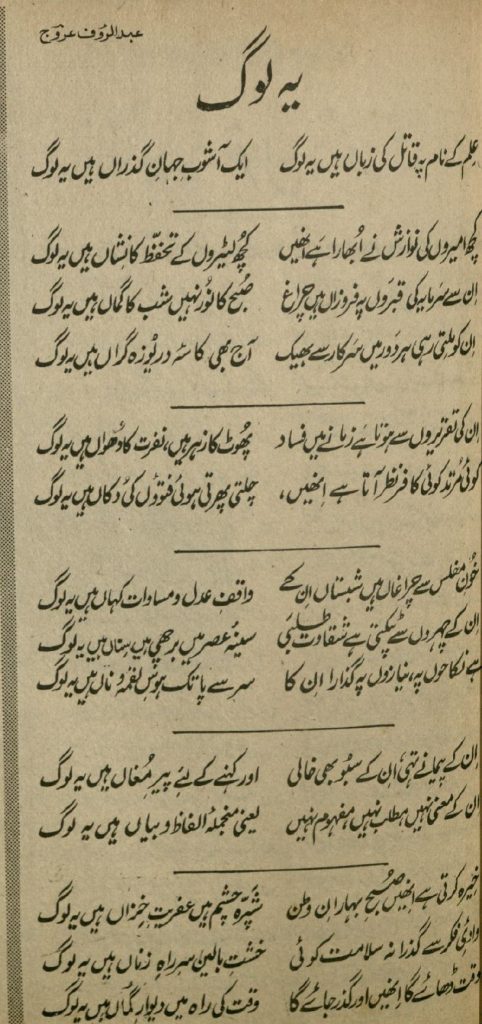 عبدالرؤف عروج
یہ لوگ
علم کے نام پہ قاتل کی زباں ہیں یہ لوگ ایک آشوبِ جہانِ گذراں ہیں یہ لوگ
کچھ امیروں کی نوازش نے اُبھارا ہے انھیں کچھ لٹیروں کے تحفّظ کا نشاں ہیں یہ لوگ
ان سے سرمایہ کی قبروں پہ فروزاں ہیں چراغ صُبح کا نُور نہیں شب کا گماں ہیں یہ لوگ
ان کو ملتی رہی ہر دَور میں سرکار سے بھیک آج بھی کاسۂ دریوزہ گراں ہیں یہ لوگ
ان کی تقریروں سے ہوتا ہے زمانے میں فساد پھُوٹ کا زہر ہیں، نفرت کا دھُواں ہیں یہ لوگ
کوئی مُرتد کوئی کافر نظر آتا ہے انھیں، چلتی پھرتی ہوئی فتوؤں کی دُکاں ہیں یہ لوگ
خُونِ مفلس سے چراغاں ہیں شبستاں ان کے واقفِ عدل و مساوات کہاں ہیں یہ لوگ
ان کے چہروں سے ٹپکتی ہے شقاوت طلبی سینۂ عصر میں برچھی ہیں سناں ہیں یہ لوگ
ہے نکاحوں پہ، نیازوں پہ گذارا ان کا سر سے پا تک ہوسِ لقمہ و ناں ہیں یہ لوگ
ان کے پیمانے تہی، ان کے سبُو بھی خالی اور کہنے کے لئے پیرِ مُغاں ہیں یہ لوگ
ان کے معنی نہیں، مطلب نہیں، مفہوم نہیں یعنی منجملۂ الفاظ و بیاں ہیں یہ لوگ
خیرہ کرتی ہے انھیں صُبحِ بہارانِ وطن شپّرہ چشم ہیں عفریتِ خزاں ہیں یہ لوگ
وادئ فکر سے گذرا نہ سلامت کوئی خشتِ بالینِ سرِ راہ زناں ہیں یہ لوگ
وقت ڈھائے گا انھیں اور گذر جائے گا وقت کی راہ میں دیوارِ گماں ہیں یہ لوگ